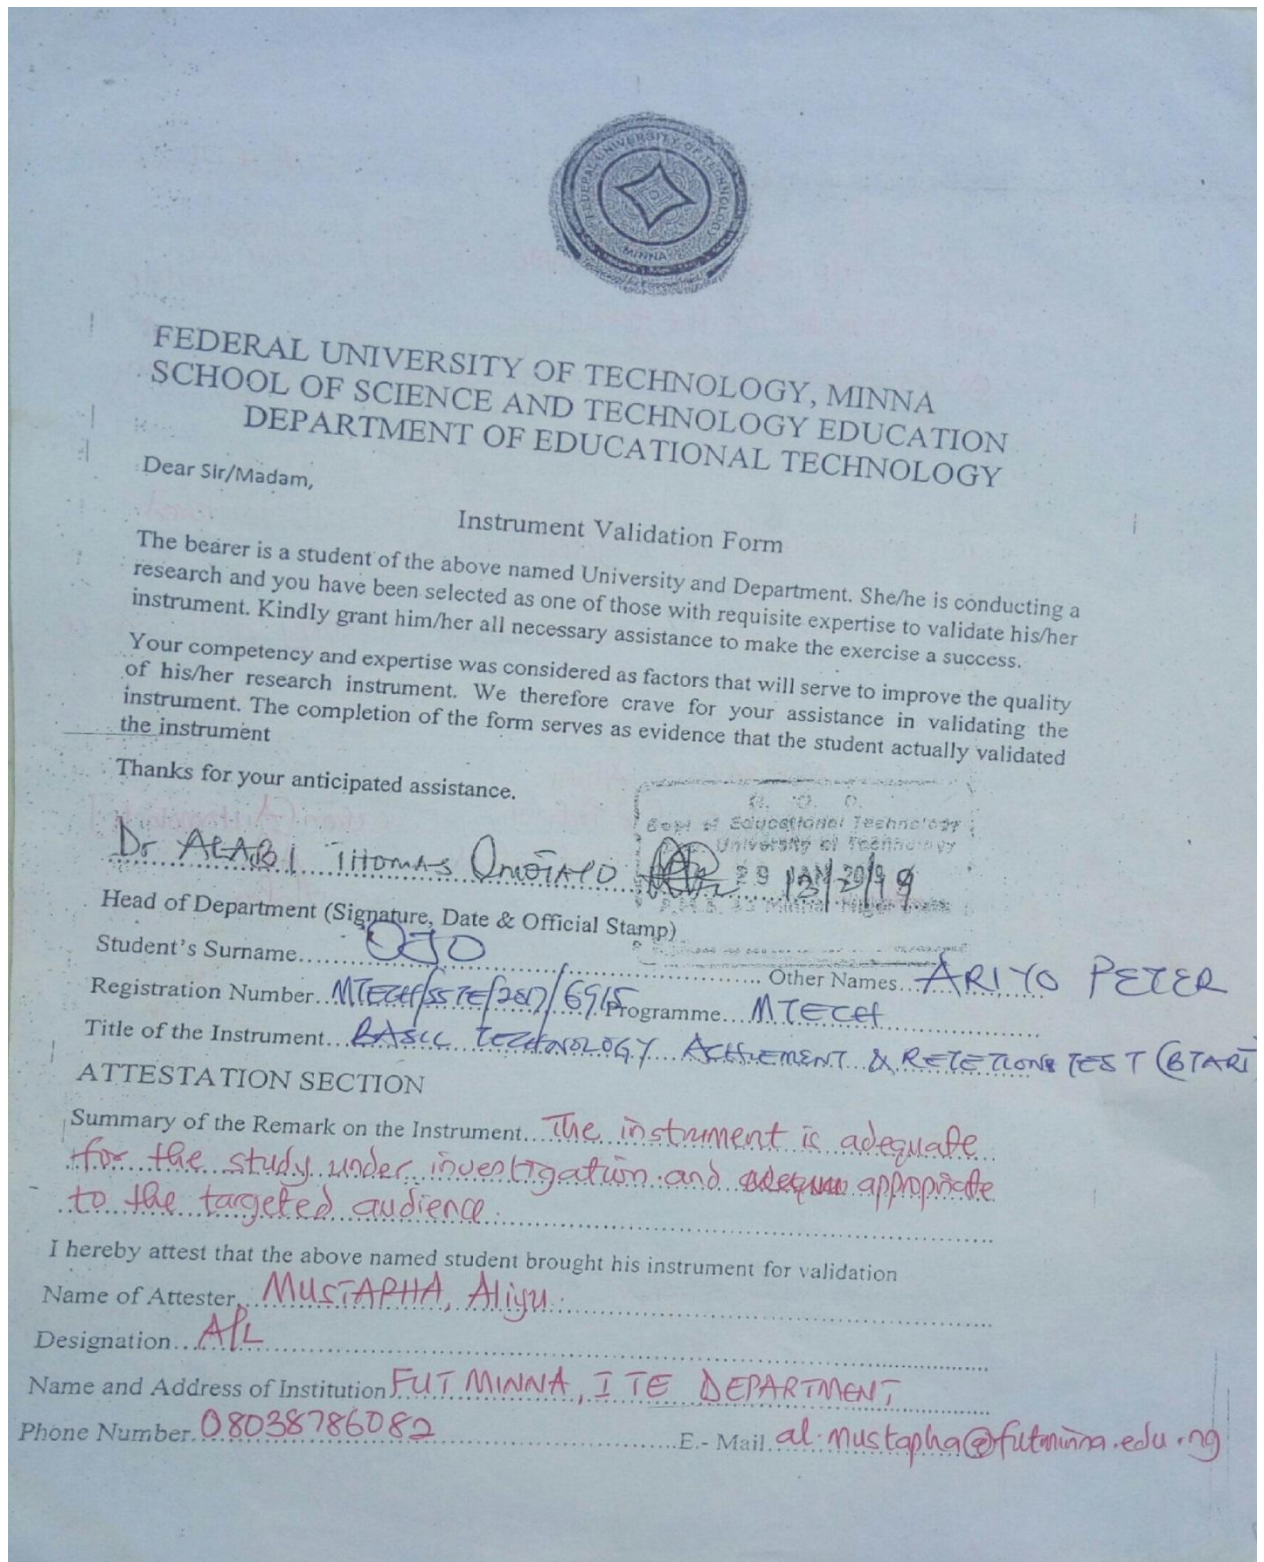 FEDERAL UNIVERSITY OF TECHNOLOGY
MINNA
FEDERAL UNIVERSITY OF TECHNOLOGY, MINNA
SCHOOL OF SCIENCE AND TECHNOLOGY EDUCATION
DEPARTMENT OF EDUCATIONAL TECHNOLOGY
Dear Sir/Madam,
Instrument Validation Form
The bearer is a student of the above named University and Department. She/he is conducting a
research and you have been selected as one of those with requisite expertise to validate his/her
instrument. Kindly grant him/her all necessary assistance to make the exercise a success.
Your competency and expertise was considered as factors that will serve to improve the quality
of his/her research instrument. We therefore crave for your assistance in validating the
instrument. The completion of the form serves as evidence that the student actually validated
the instrument
Thanks for your anticipated assistance.
H. O. D.
Dept of Educational Technology
University of Technology
29 JAN 2019
P.M.B. 65 Minna, Niger State
Dr ALABI THOMAS OMOTAYO 12/2/19
Head of Department (Signature, Date & Official Stamp)
Student's Surname...OJO... Other Names...ARIYO PETER
Registration Number..MTECH/SSTE/2017/6915 Programme...MTECH
Title of the Instrument...BASIC TECHNOLOGY ACHIEMENT & RETETIONS TEST (BTART
ATTESTATION SECTION
Summary of the Remark on the Instrument...The instrument is adequate
for the study under investigation and appropriate
to the targeted audience.
I hereby attest that the above named student brought his instrument for validation
Name of Attester..MUSTAPHA, Aliyu.
Designation...A/L
Name and Address of Institution FUT MINNA, ITE DEPARTMENT
Phone Number.08038786082 E.- Mail.al.mustapha@futminna.edu.ng